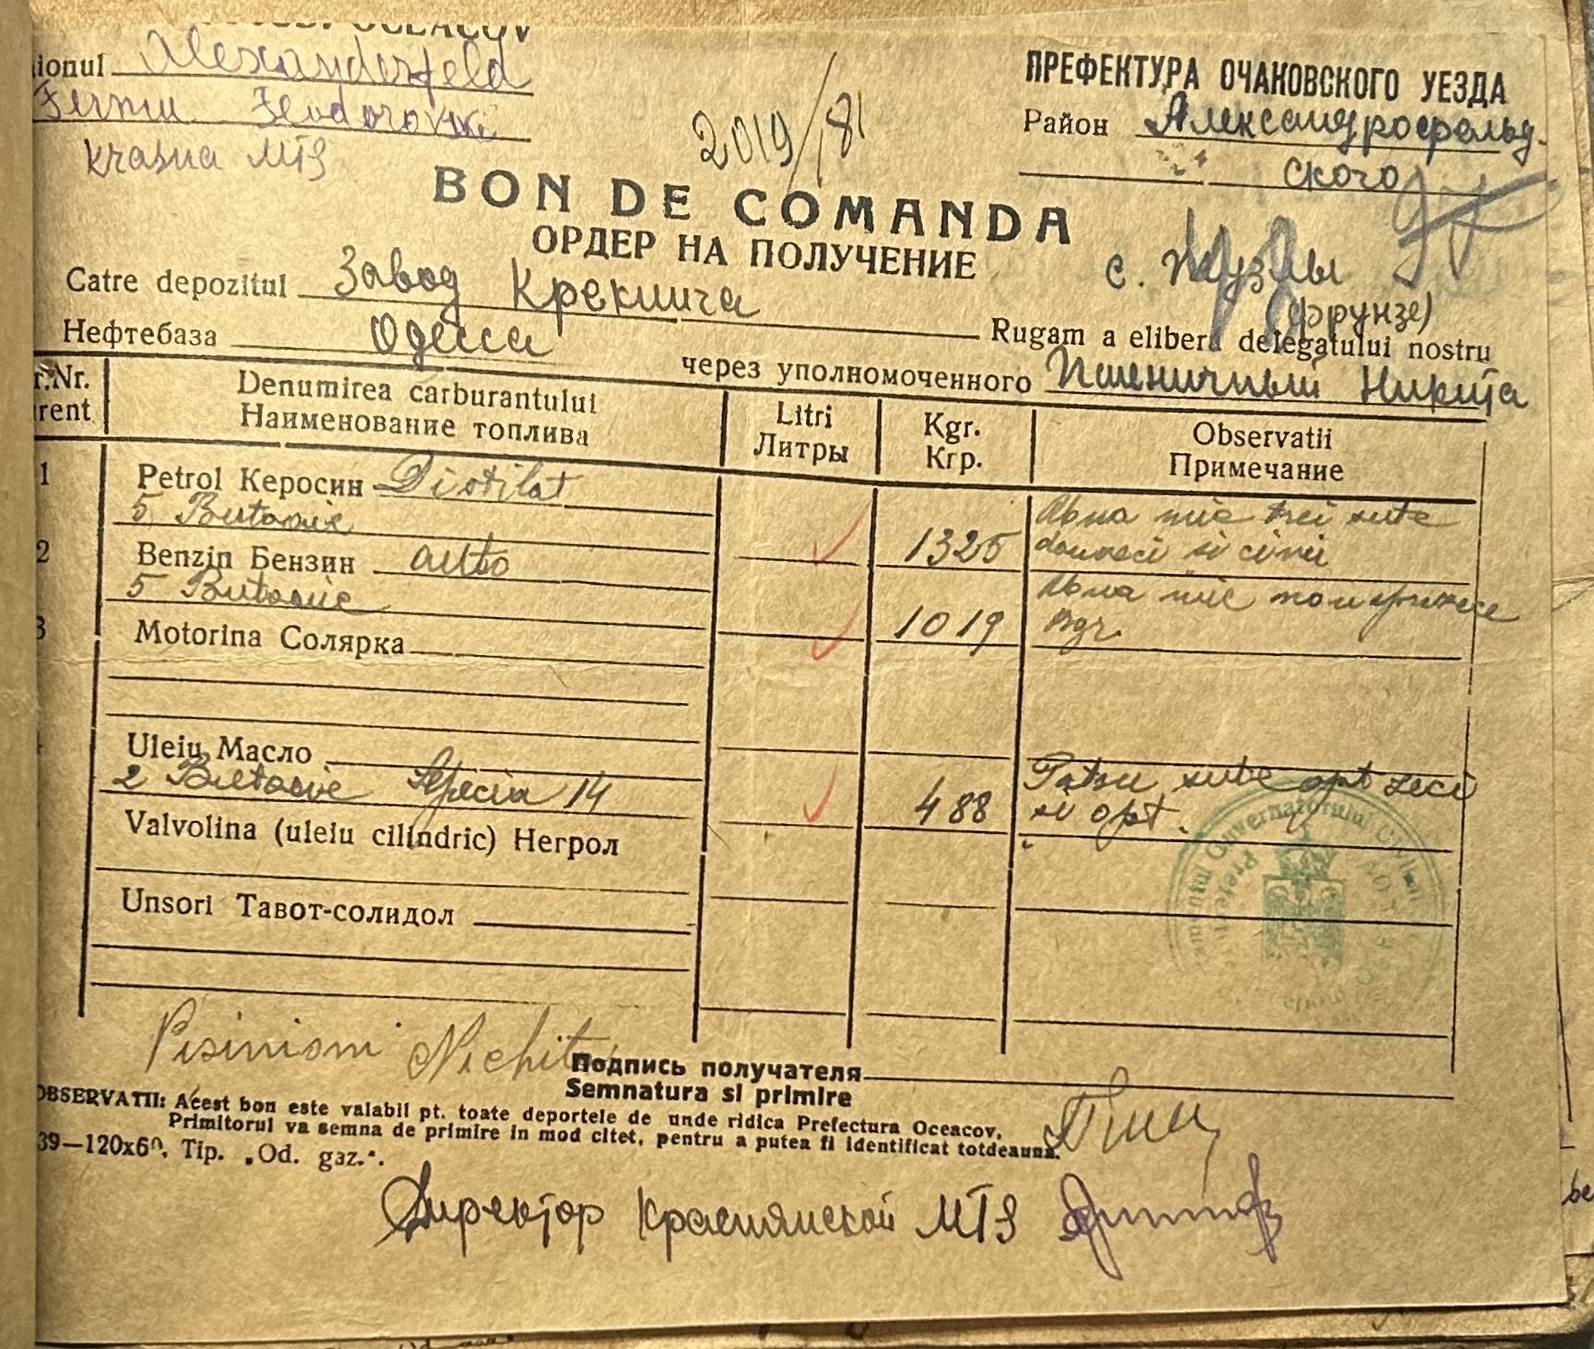 OCEACOV
ionul Alexanderfeld
Fermu Feodorovski
Krasna MTS
2019/181
ПРЕФЕКТУРА ОЧАКОВСКОГО УЕЗДА
Район Александрофельд-
ского
BON DE COMANDA
ОРДЕР НА ПОЛУЧЕНИЕ
с.
(Фрунзе)
Catre depozitul Завод Крекинга
Нефтебаза Одесса
Rugam a elibera delegatului nostru
через уполномоченного Пшеничный Никита
r.Nr.
rent
Denumirea carburantului
Наименование топлива
Litri
Литры
Kgr.
Кгр.
Observatii
Примечание
1 Petrol Керосин Distilat
5 Butoaie 1325 una mie trei sute
douazeci si cinci
2 Benzin Бензин auto
5 Butoaie 1019 una mie
kgr.
3 Motorina Солярка
Uleiu Масло
2 Butoaie 14 488 Patru sute opt zeci
si opt.
Valvolina (uleiu cilindric) Негрол
Unsori Тавот-солидол
Guvernatorului Civil
Pisinioni Nichita
Подпись получателя
Semnatura si primire
OBSERVATII: Acest bon este valabil pt. toate deportele de unde ridica Prefectura Oceacov.
Primitorul va semna de primire in mod citet, pentru a putea fi identificat totdeauna.
39—120x60. Tip. „Od. gaz.".
Директор Краснянской МТS